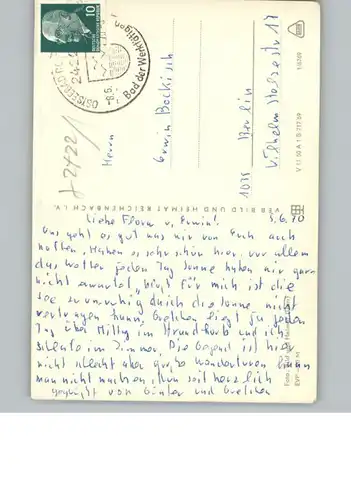 10
OSTSEEBAD
2422
-8.6.
Bad der Werktätigen!
f 2422/1
Herrn
Erwin Bockisch
1035 Berlin
Wilhelm Stolzestr 17
V 11 50 A 1 B 717/69
VEB BILD UND HEIMAT REICHENBACH I. V.
5.6.70
Liebe Flora u. Erwin!
Uns geht es gut was wir von Euch auch
hoffen. Haben es sehr schön hier, vor allem
das Wetter jeden Tag Sonne haben wir gar
nicht erwartet. Nur für mich ist die
See zu unruhig auch die Sonne nicht
vertragen kann. Gretchen liegt zu jeden
Tag über Mittag im Strandkorb und ich
schlafe im Zimmer. Die Gegend ist hier
nicht schlecht aber große Wanderturen kann
man nicht machen. Nun seit herzlich
gegrüßt von Günter und Gretchen